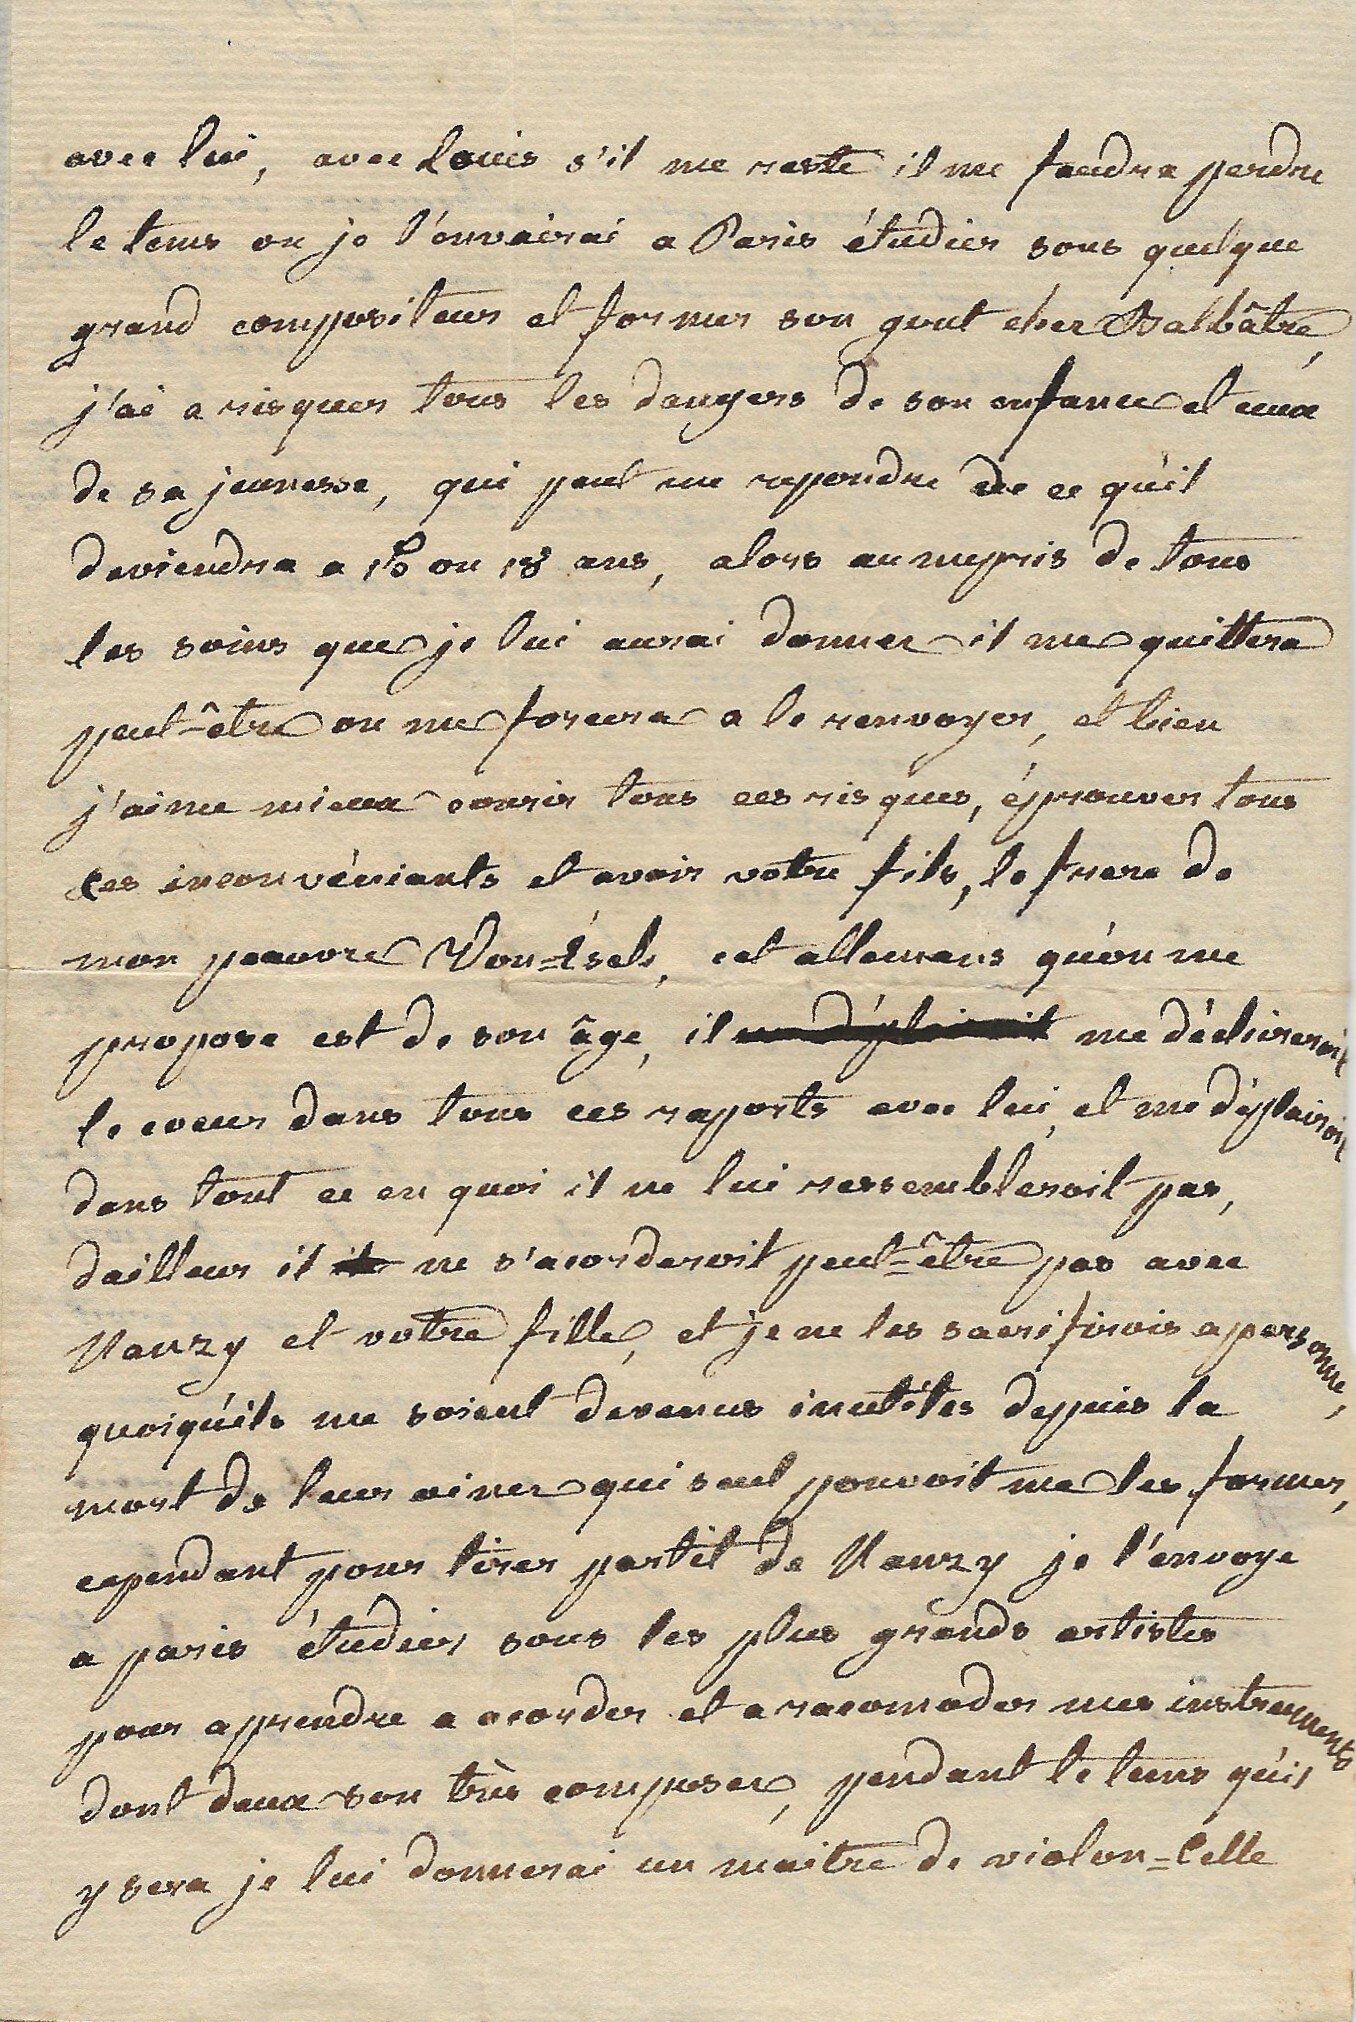 avec lui, avec Louis s'il me reste il me faudra perdre
le tems ou je l'envairai a Paris étudier sous quelque
grand compositeur et former son gout cher Balbâtre,
j'ai a risquer tous les dangers de son enfance et ceux
de sa jeunesse, qui peut me repondre de ce qu'il
deviendra a 16 ou 18 ans, alors au mepris de tous
les soins que je lui aurai donner il me quittera
peut-être ou me forcera a le renvoyer, et bien
j'aime mieux courir tous ces risques, éprouver tous
ces inconvéniants et avoir votre fils, le frere de
mon pauvre cet allemans qu'on me
propose est de son âge, il me déplairoit me déchireroit
le coeur dans tous ces raports avec lui, et me déplairoit
dans tout ce en quoi il ne lui ressembleroit pas,
dailleur il il ne s'acorderoit peut-être pas avec
Nanzy et votre fille, et je ne les sacrifirois a personne,
quoiqu'ils me soient devenus inutiles depuis la
mort de leur ainer qui seul pouvoit me les former,
cependant pour tirer partit de Nanzy je l'envoye
a paris étudier sous les plus grands artistes
pour aprendre a acorder et a racomoder mes instruments
dont deux son très composer, pendant le tems qu'il
y sera je lui donnerai un maitre de violon-celle